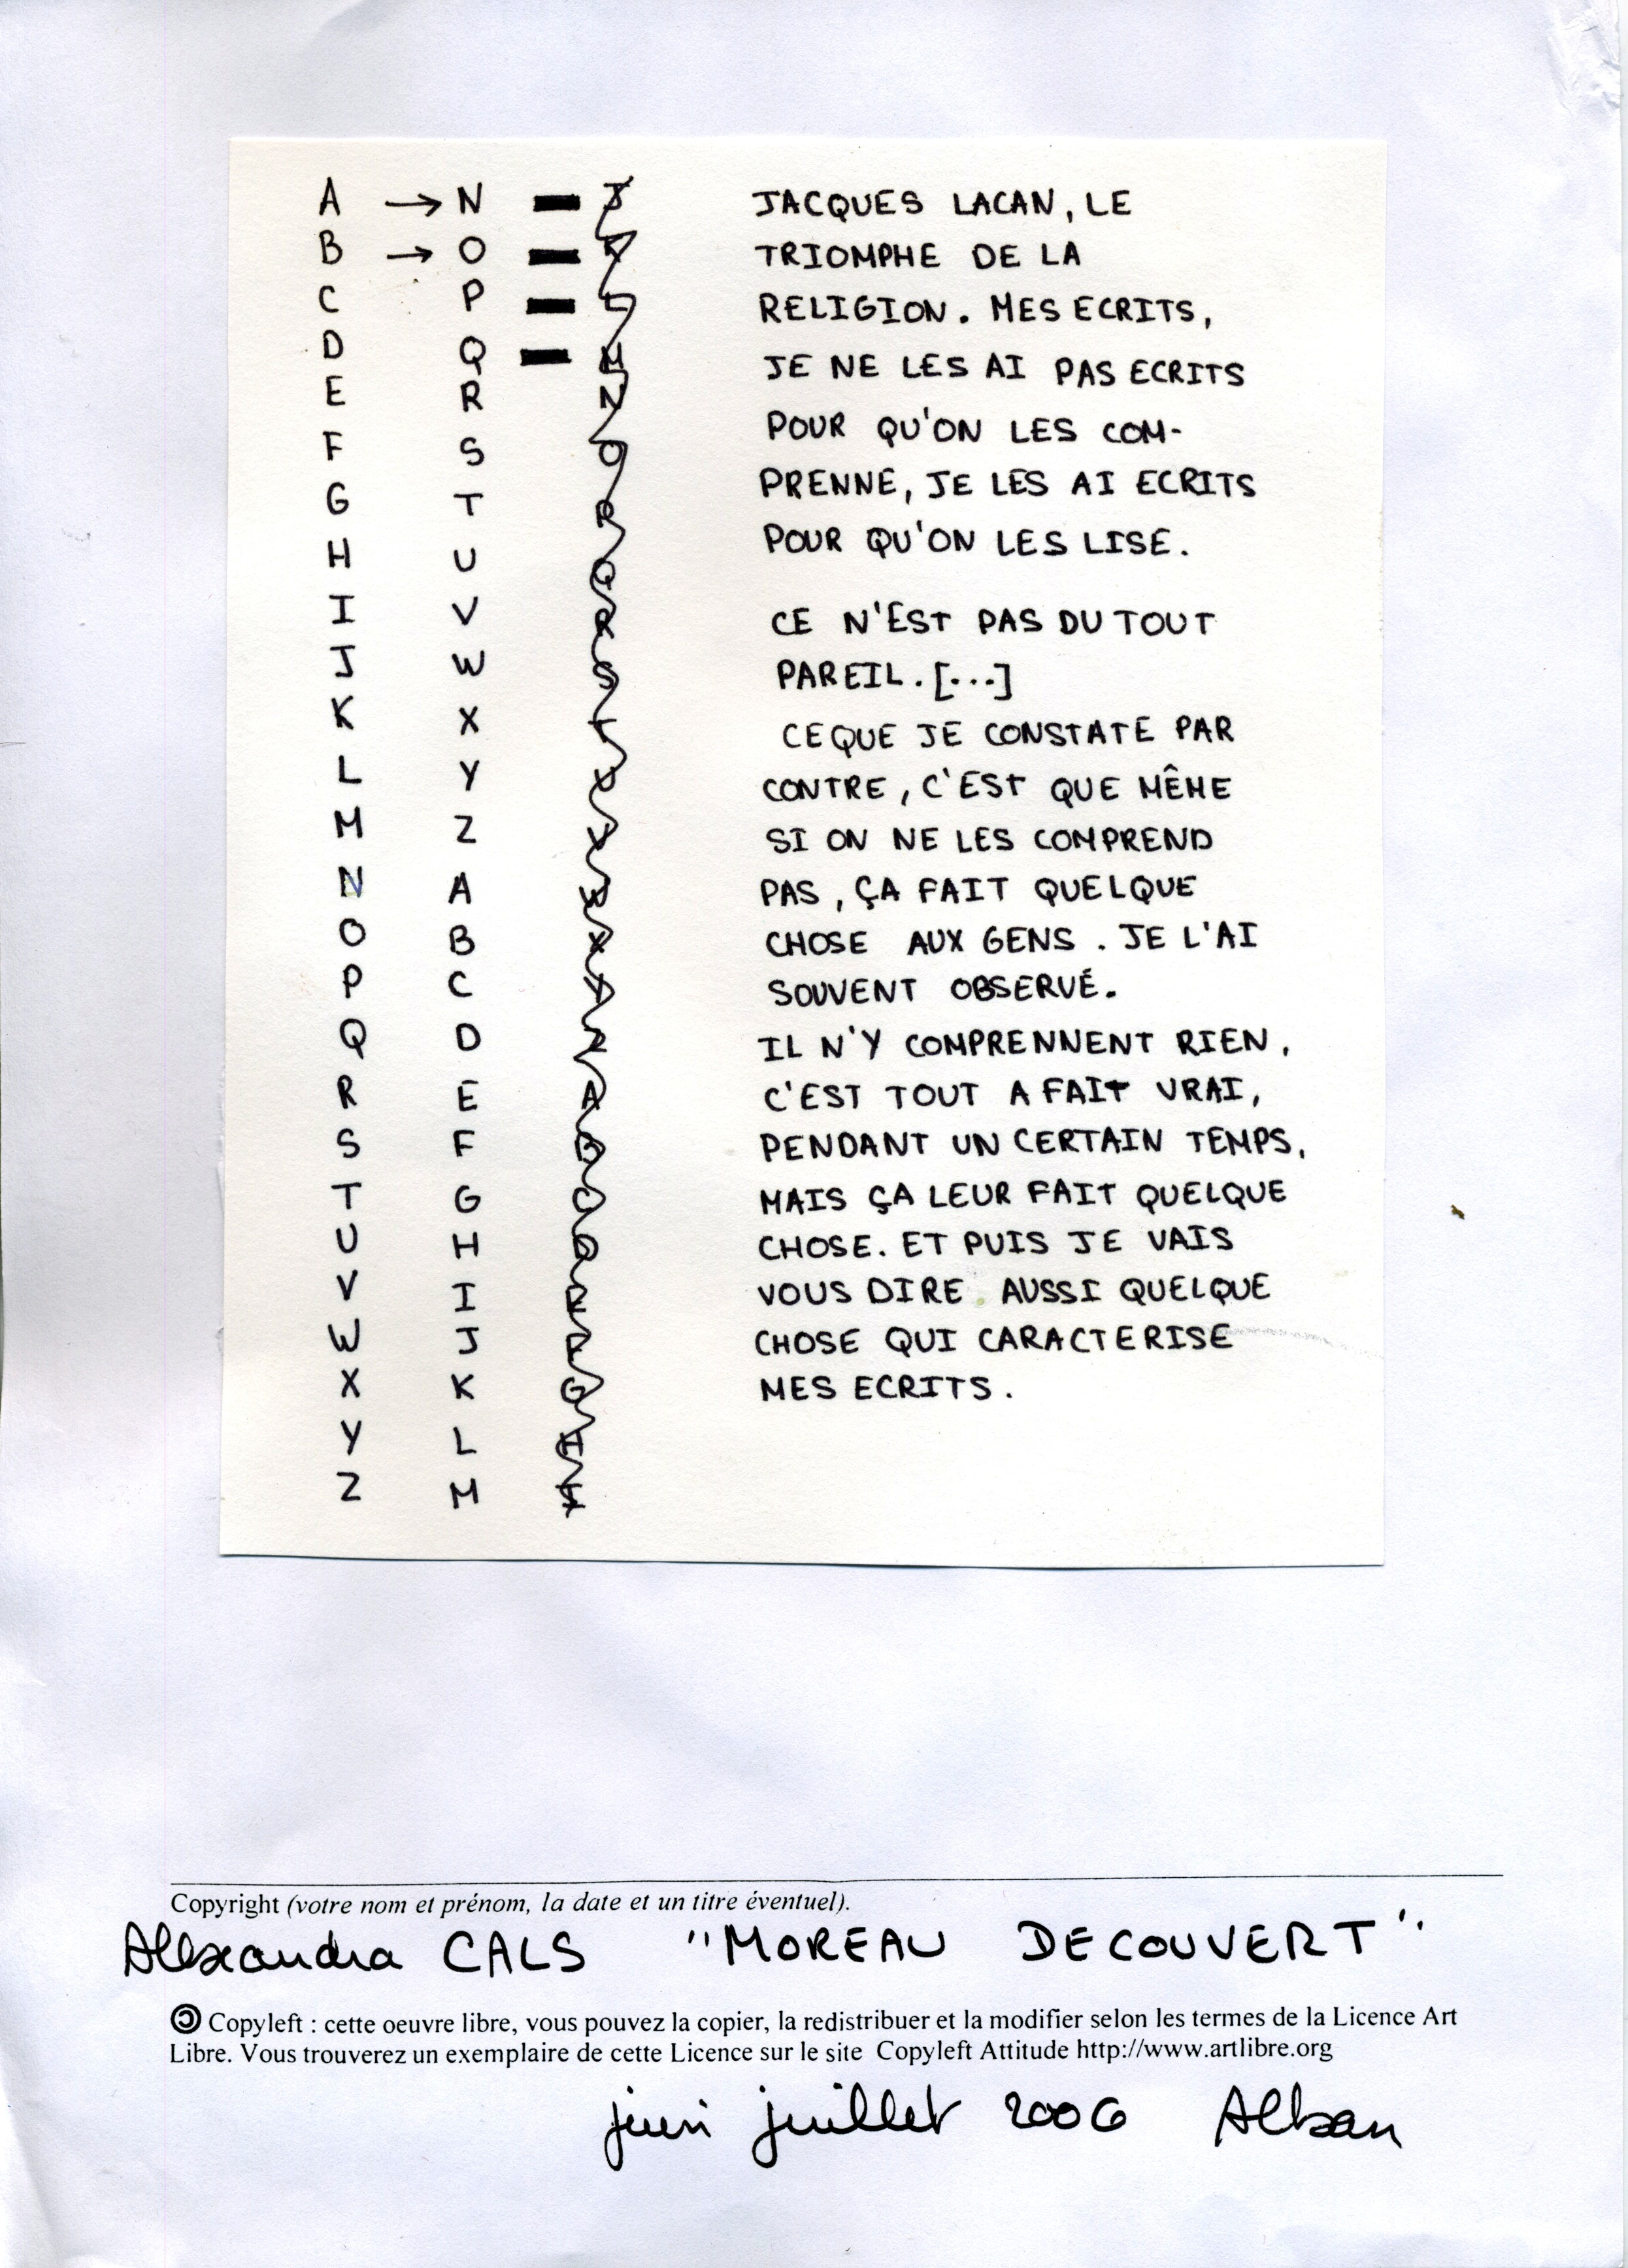 A → N
B → O
C P
D Q
E R
F S
G T
H U
I V
J W
K X
L Y
M Z
N A
O B
P C
Q D
R E
S F
T G
U H
V I
W J
X K
Y L
Z M
JACQUES LACAN, LE
TRIOMPHE DE LA
RELIGION. MES ECRITS,
JE NE LES AI PAS ECRITS
POUR QU'ON LES COM-
PRENNE, JE LES AI ECRITS
POUR QU'ON LES LISE.
CE N'EST PAS DU TOUT
PAREIL. [...]
CE QUE JE CONSTATE PAR
CONTRE, C'EST QUE MÊME
SI ON NE LES COMPREND
PAS, ÇA FAIT QUELQUE
CHOSE AUX GENS. JE L'AI
SOUVENT OBSERVÉ.
IL N'Y COMPRENNENT RIEN,
C'EST TOUT A FAIT VRAI,
PENDANT UN CERTAIN TEMPS,
MAIS ÇA LEUR FAIT QUELQUE
CHOSE. ET PUIS JE VAIS
VOUS DIRE AUSSI QUELQUE
CHOSE QUI CARACTERISE
MES ECRITS.
Copyright (votre nom et prénom, la date et un titre éventuel).
Alexandra CALS "MOREAU DECOUVERT"
🄯 Copyleft : cette oeuvre libre, vous pouvez la copier, la redistribuer et la modifier selon les termes de la Licence Art
Libre. Vous trouverez un exemplaire de cette Licence sur le site Copyleft Attitude http://www.artlibre.org
juin juillet 2006 Alban